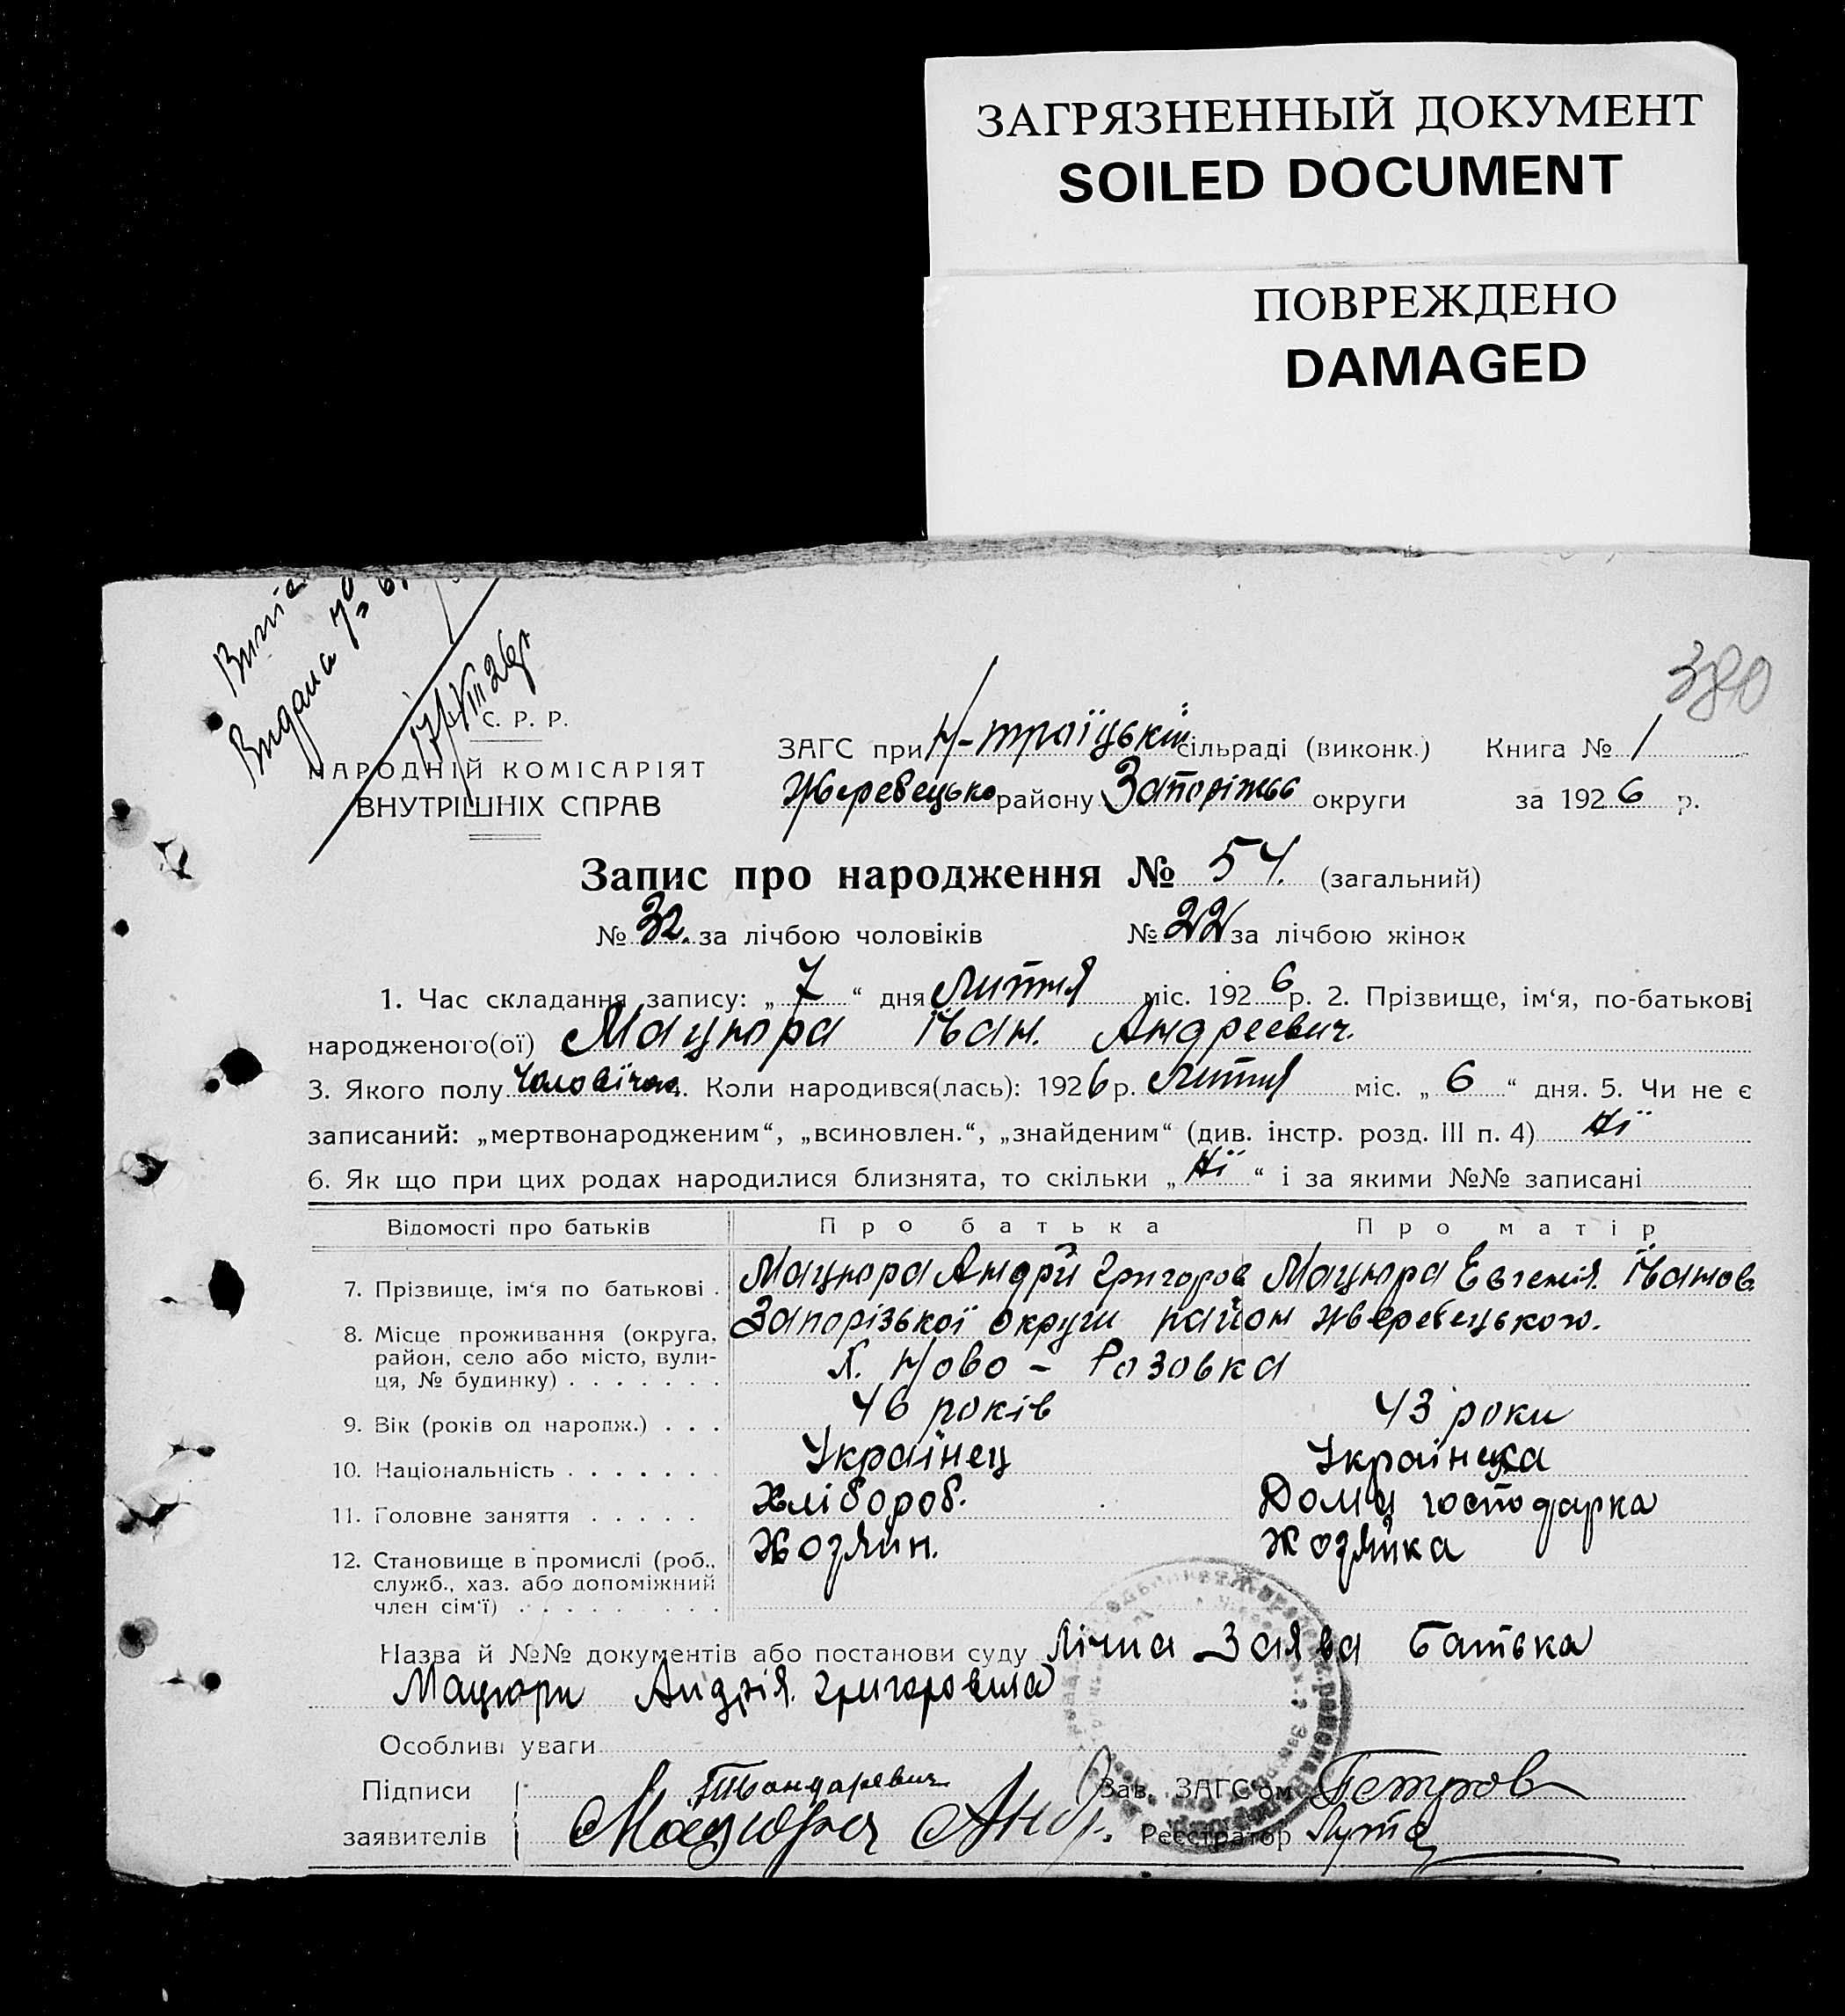 ЗАГРЯЗНЕННЫЙ ДОКУМЕНТ
SOILED DOCUMENT
ПОВРЕЖДЕНО
DAMAGED
380
Видана №
17/VIII 26р.
С. Р. Р.
НАРОДНІЙ КОМІСАРІЯТ
ВНУТРІШНІХ СПРАВ
ЗАГС при Н-троїцькій сільраді (виконк.) Книга № 1
Жеребецько району Запоріжжс округи за 1926 р.
Запис про народження № 54. (загальний)
№ 32. за лічбою чоловіків № 22 за лічбою жінок
1. Час складання запису: „ 7 “ дня Липня міс. 1926 р. 2. Прізвище, ім‘я, по-батькові
народженого(ої) Мацюра Іван. Андреевич.
3. Якого полу Чоловічас. Коли народився(лась): 1926 р. Липня міс. „ 6 “ дня. 5. Чи не є
записаний: „мертвонародженим“, „всиновлен.“, „знайденим“ (див. інстр. розд. III п. 4) Ні
6. Як що при цих родах народилися близнята, то скільки „ Ні “ і за якими №№ записані
Відомості про батьків Про батька Про матір
7. Прізвище, ім‘я по батькові . Мацюра Андрій Григоров Мацюра Евгенія. Іванов.
8. Місце проживання (округа, Запорізької округи район Жеребецького.
район, село або місто, вули-
ця, № будинку) . . . . . . . Х. Ново - Розовка
9. Вік (років од народж.) . . . 46 років 43 роки
10. Національність . . . . . . . Українец Українська
11. Головне заняття . . . . . Хлібороб. Дома господарка
12. Становище в промислі (роб., Хозяин. Хозяйка
служб., хаз. або допоміжний
член сім‘ї) . . . . . . . . .
Назва й №№ документів або постанови суду Лічна Заява Батька
Мацюри Андрія. Григоровича
Особливі уваги
Підписи Зав. ЗАГС‘ом Петров
заявителів Мацюра Анд. Реєстратор Лута